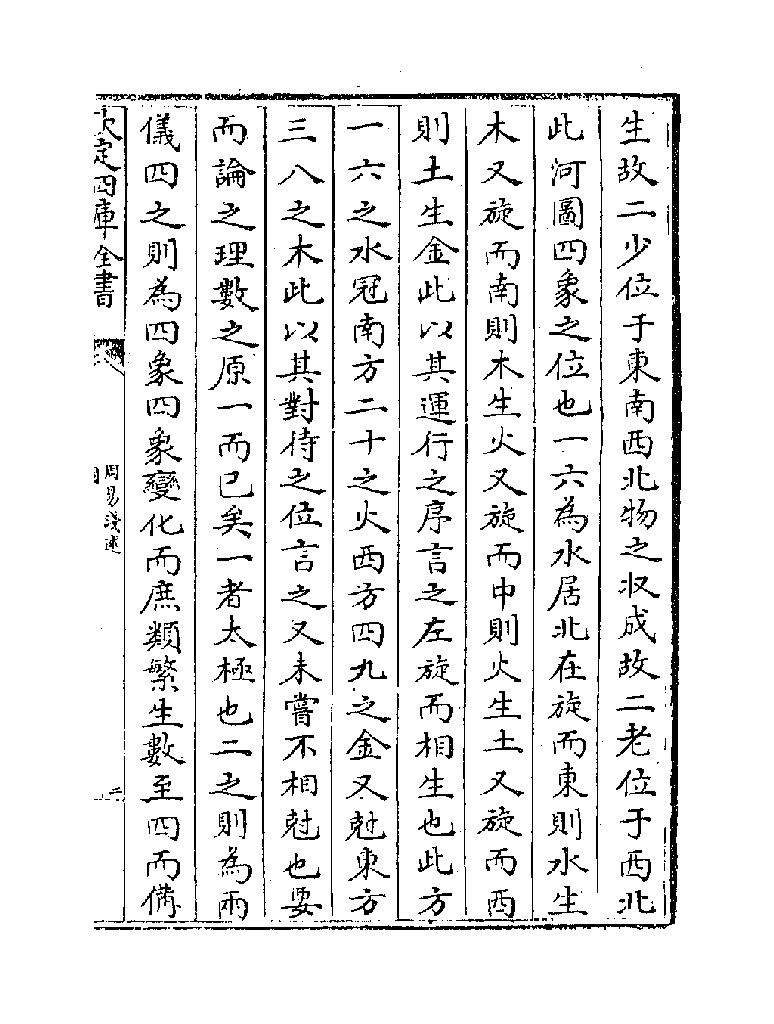 生故二少位于東南西北物之收成故二老位于西北
此河圖四象之位也一六為水居北在旋而東則水生
木又旋而南則木生火又旋而中則火生土又旋而西
則土生金此以其運行之序言之左旋而相生也此方
一六之水冠南方二十之火西方四九之金又尅東方
三八之木此以其對待之位言之又未嘗不相尅也要
而論之理數之原一而已矣一者太極也二之則為兩
儀四之則為四象四象變化而庶類繁生數至四而備
欽定四庫全書
周易淺述
二